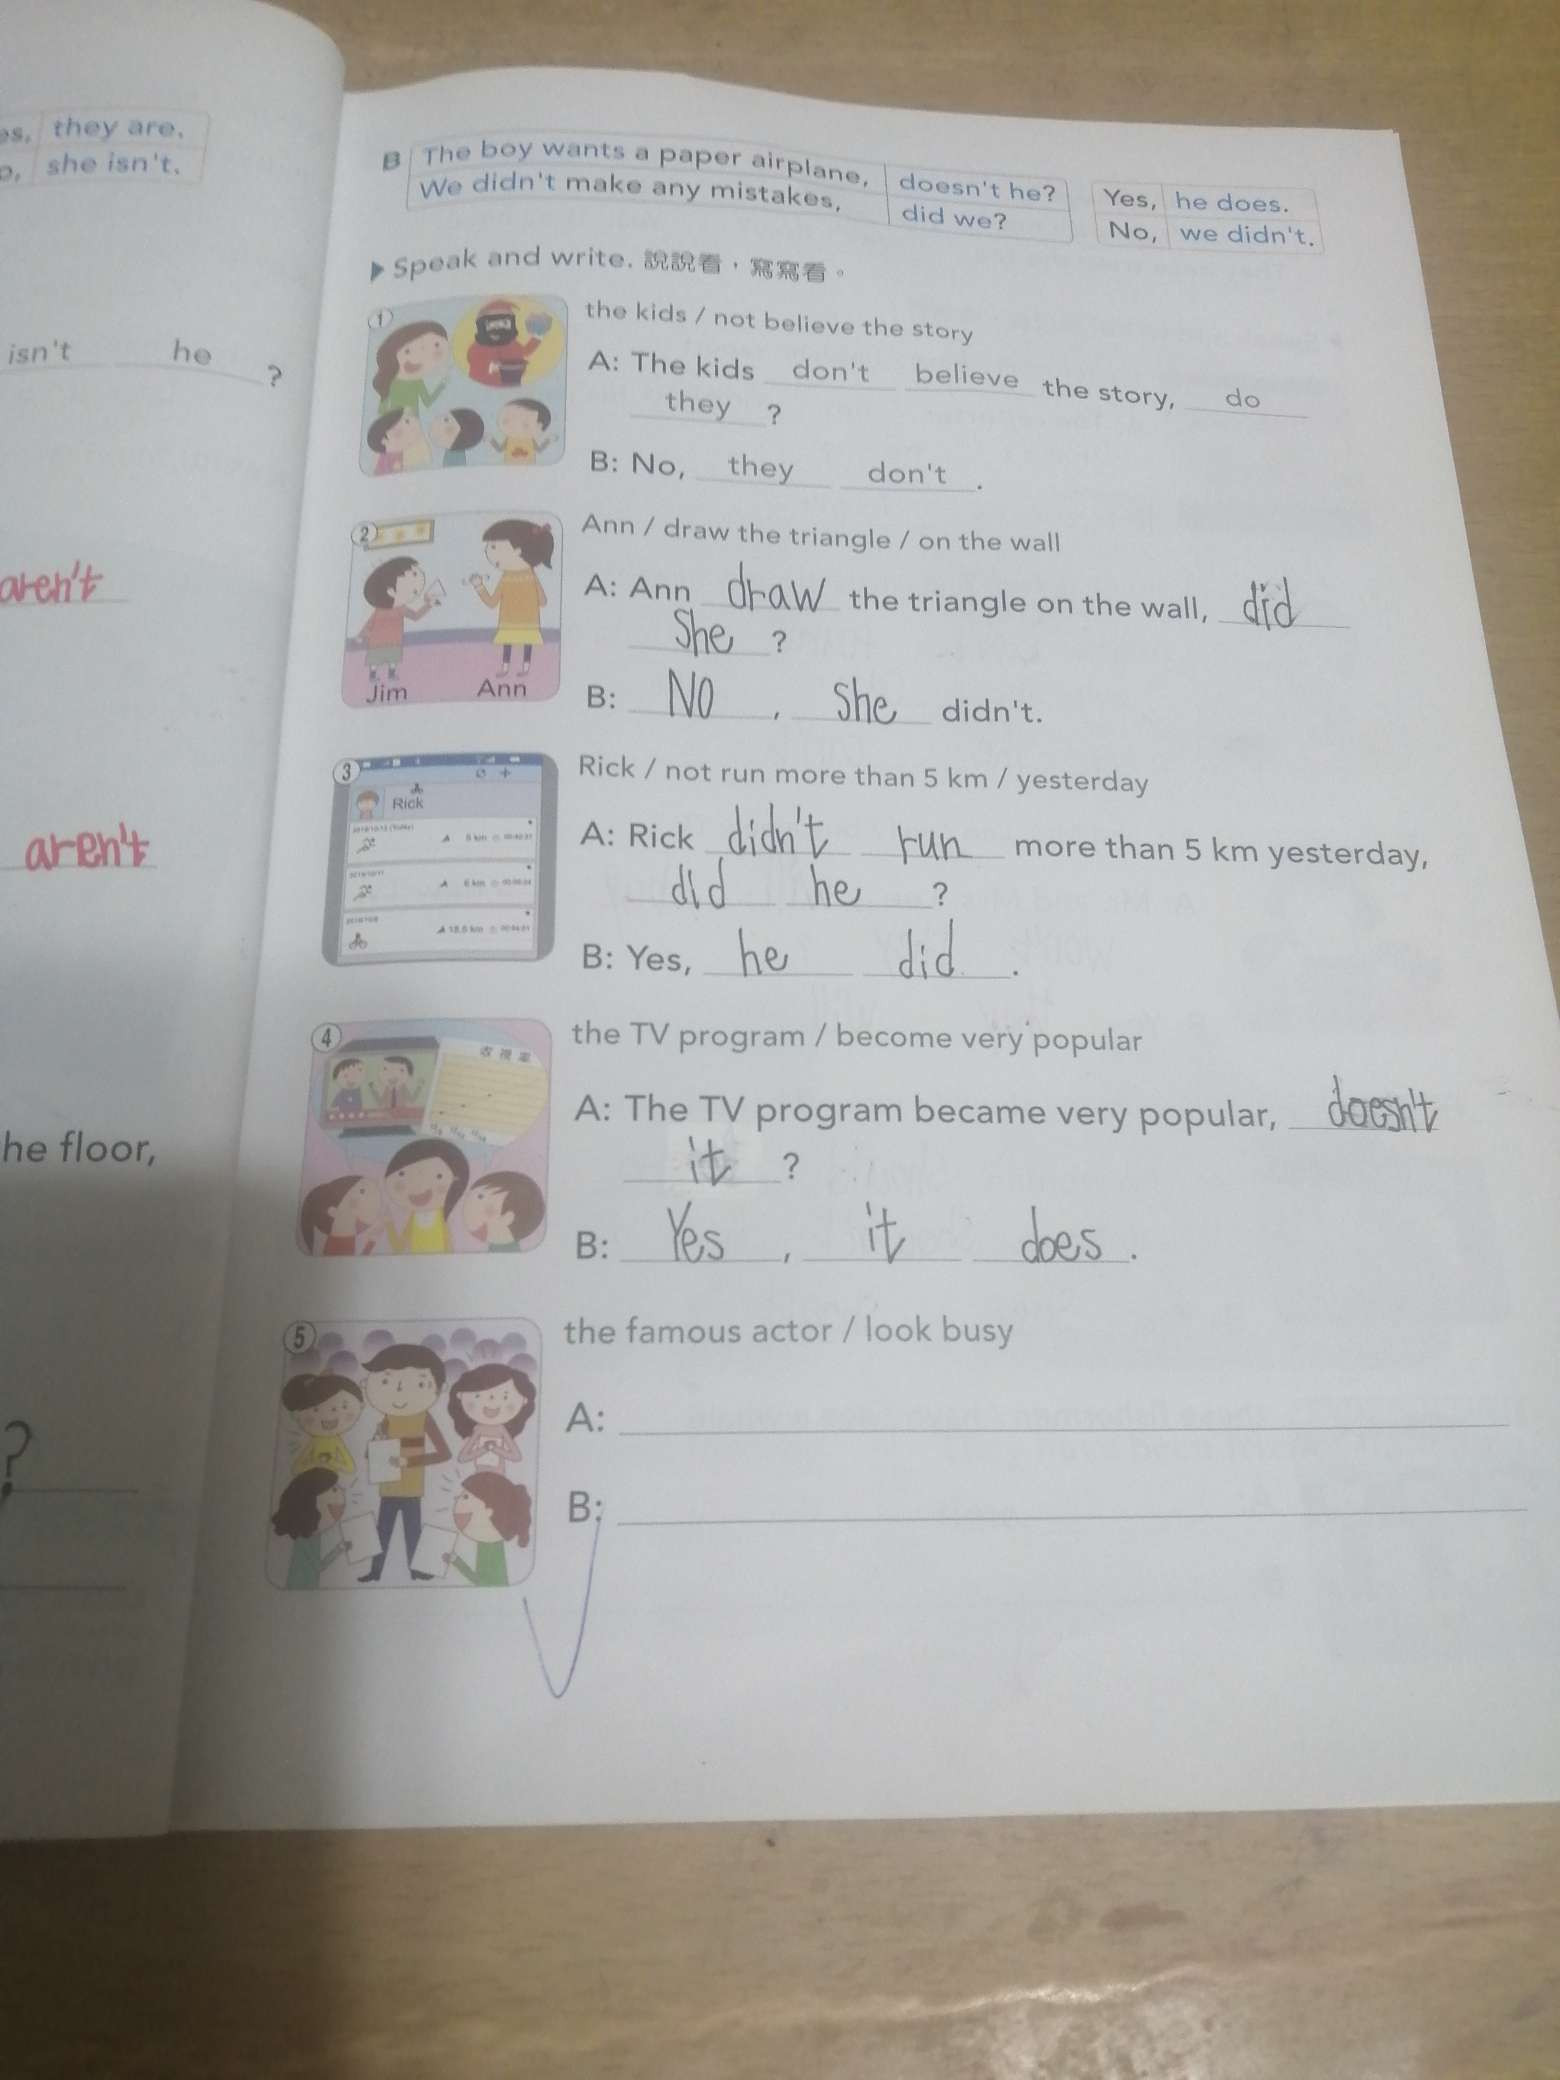 they are.
she isn't.
isn't he ?
aren't
aren't
he floor,
?
B The boy wants a paper airplane, doesn't he? Yes, he does.
We didn't make any mistakes, did we? No, we didn't.
▶ Speak and write. 說說看，寫寫看。
① the kids / not believe the story
A: The kids don't believe the story, do
they ?
B: No, they don't .
② Ann / draw the triangle / on the wall
A: Ann draw the triangle on the wall, did
She ?
Jim Ann
B: NO , She didn't.
③ Rick / not run more than 5 km / yesterday
Rick
A: Rick didn't run more than 5 km yesterday,
did he ?
B: Yes, he did .
④ the TV program / become very popular
收視率
A: The TV program became very popular, doesn't
it ?
B: Yes , it does .
⑤ the famous actor / look busy
A:
B: